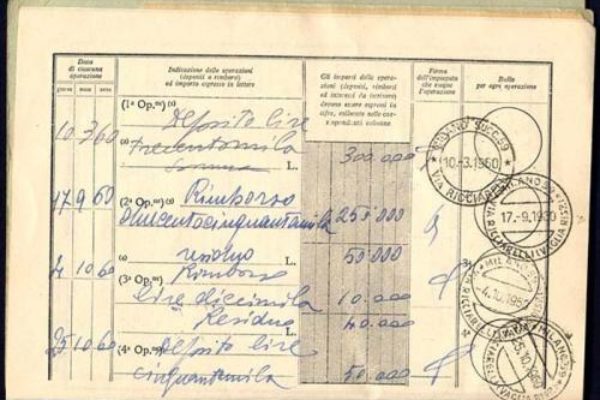 Data
di ciascuna
operazione
giorno mese anno
Indicazione delle operazioni
(depositi o rimborsi)
ed importo espresso in lettere
Gli importi delle opera-
zioni (depositi, rimborsi
ed interessi da iscrivere)
devono essere espressi in
cifre, soltanto nelle cor-
rispondenti colonne
Firma
dell'impiegato
che esegue
l'operazione
Bollo
per ogni operazione
(1ª Op.ne) (a)
10 3 60 Deposito lire
trecentomila
L. 300.000
MILANO SUCC. 59
10.-3.1960
VIA RICCIARELLI
17 9 60 (2ª Op.ne) (a) Rimborso
duecentocinquantamila 250.000
17.-9.1960
residuo L. 50.000
4 10 60 Rimborso
(3ª Op.ne)
lire diecimila 10.000
-4.10.1960
Residuo L. 40.000
25 10 60 Deposito lire
(4ª Op.ne)
cinquantamila 50.000
25.10.1960